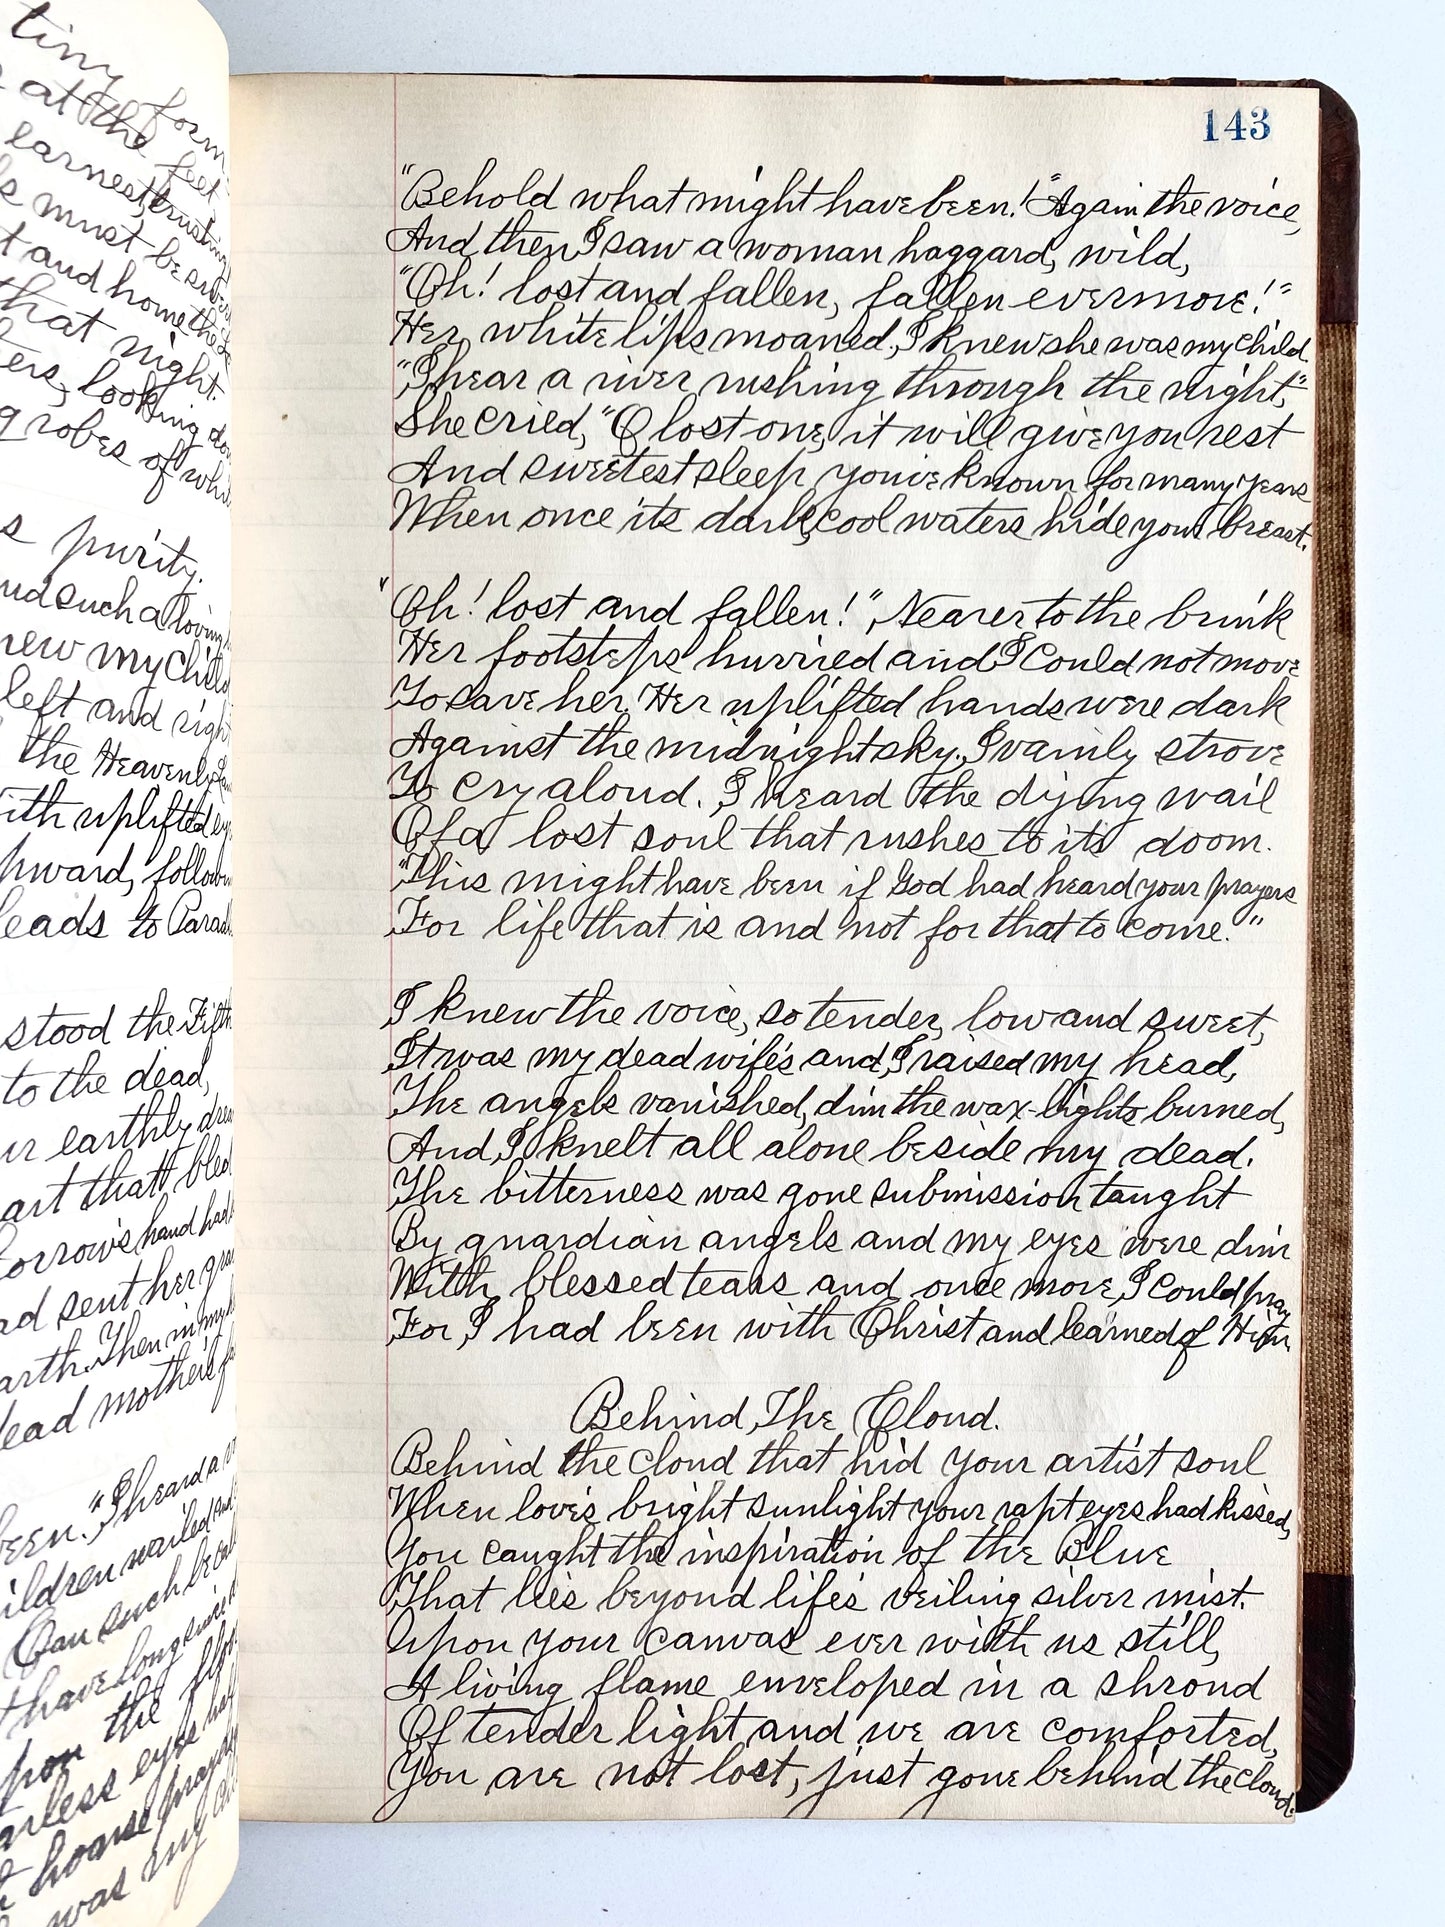 tiny form
at the feet
earnest, trusting
must be
t and home the
that night.
ters, looking
g robes of
s purity.
such a loving
new my child
left and right
the Heavenly
ith uplifted
pward,
leads to
stood the Fifth
to the dead,
ur earthly
art that
Sorrow's hand
ad sent her
arth. Then in my
dead mother's
been." "I heard a
ildren wailed
Can such be
t have long
pon the
arless eyes
hoarse
was my
143
"Behold what might have been!" Again the voice,
And then I saw a woman haggard, wild,
"Oh! lost and fallen, fallen evermore!"
Her white lips moaned, I knew she was my child
"I hear a river rushing through the night,"
She cried, "O lost one, it will give you rest
And sweetest sleep you've known for many years
When once its dark, cool waters hide your breast.
"Oh! lost and fallen!" Nearer to the brink
Her footsteps hurried and I could not move
To save her. Her uplifted hands were dark
Against the midnight sky. I vainly strove
To cry aloud. I heard the dying wail
Of a lost soul that rushes to its doom.
"This might have been if God had heard your prayers
For life that is and not for that to come."
I knew the voice, so tender, low and sweet,
It was my dead wife's and I raised my head,
The angels vanished, dim the wax-lights burned,
And I knelt all alone beside my dead.
The bitterness was gone submission taught
By guardian angels and my eyes were dim
With blessed tears and once more I could pray
For I had been with Christ and learned of Him.
Behind The Cloud.
Behind the cloud that hid your artist soul
When love's bright sunlight your rapt eyes had kissed,
You caught the inspiration of the Blue
That lies beyond life's veiling silver mist.
Upon your canvas ever with us still,
A living flame enveloped in a shroud
Of tender light and we are comforted,
You are not lost, just gone behind the cloud.